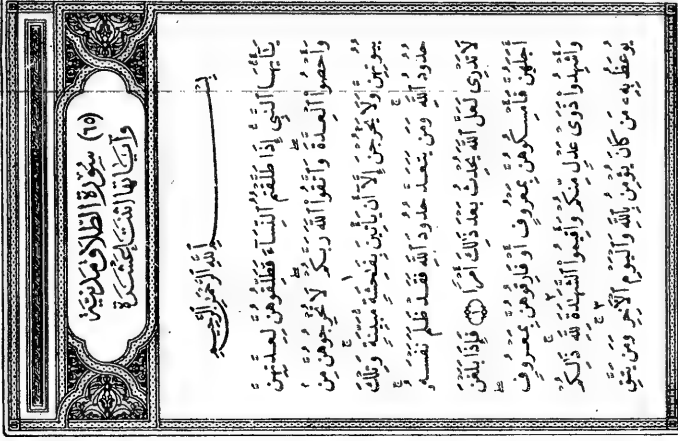 (٦٥) سُورَةُ الطَّلَاقِ مَدَنِيَّةٌ
وَآيَاتُهَا اثْنَتَا عَشْرَةَ
بِسْمِ ٱللَّهِ ٱلرَّحْمَٰنِ ٱلرَّحِيمِ
يَٰٓأَيُّهَا ٱلنَّبِىُّ إِذَا طَلَّقْتُمُ ٱلنِّسَآءَ فَطَلِّقُوهُنَّ لِعِدَّتِهِنَّ
وَأَحْصُوا۟ ٱلْعِدَّةَ ۖ وَٱتَّقُوا۟ ٱللَّهَ رَبَّكُمْ ۖ لَا تُخْرِجُوهُنَّ مِنۢ
بُيُوتِهِنَّ وَلَا يَخْرُجْنَ إِلَّآ أَن يَأْتِينَ بِفَٰحِشَةٍ مُّبَيِّنَةٍ ۚ وَتِلْكَ
حُدُودُ ٱللَّهِ ۚ وَمَن يَتَعَدَّ حُدُودَ ٱللَّهِ فَقَدْ ظَلَمَ نَفْسَهُۥ ۚ
لَا تَدْرِى لَعَلَّ ٱللَّهَ يُحْدِثُ بَعْدَ ذَٰلِكَ أَمْرًا ۝١ فَإِذَا بَلَغْنَ
أَجَلَهُنَّ فَأَمْسِكُوهُنَّ بِمَعْرُوفٍ أَوْ فَارِقُوهُنَّ بِمَعْرُوفٍ
وَأَشْهِدُوا۟ ذَوَىْ عَدْلٍ مِّنكُمْ وَأَقِيمُوا۟ ٱلشَّهَٰدَةَ لِلَّهِ ۚ ذَٰلِكُمْ
يُوعَظُ بِهِۦ مَن كَانَ يُؤْمِنُ بِٱللَّهِ وَٱلْيَوْمِ ٱلْءَاخِرِ ۚ وَمَن يَتَّقِ